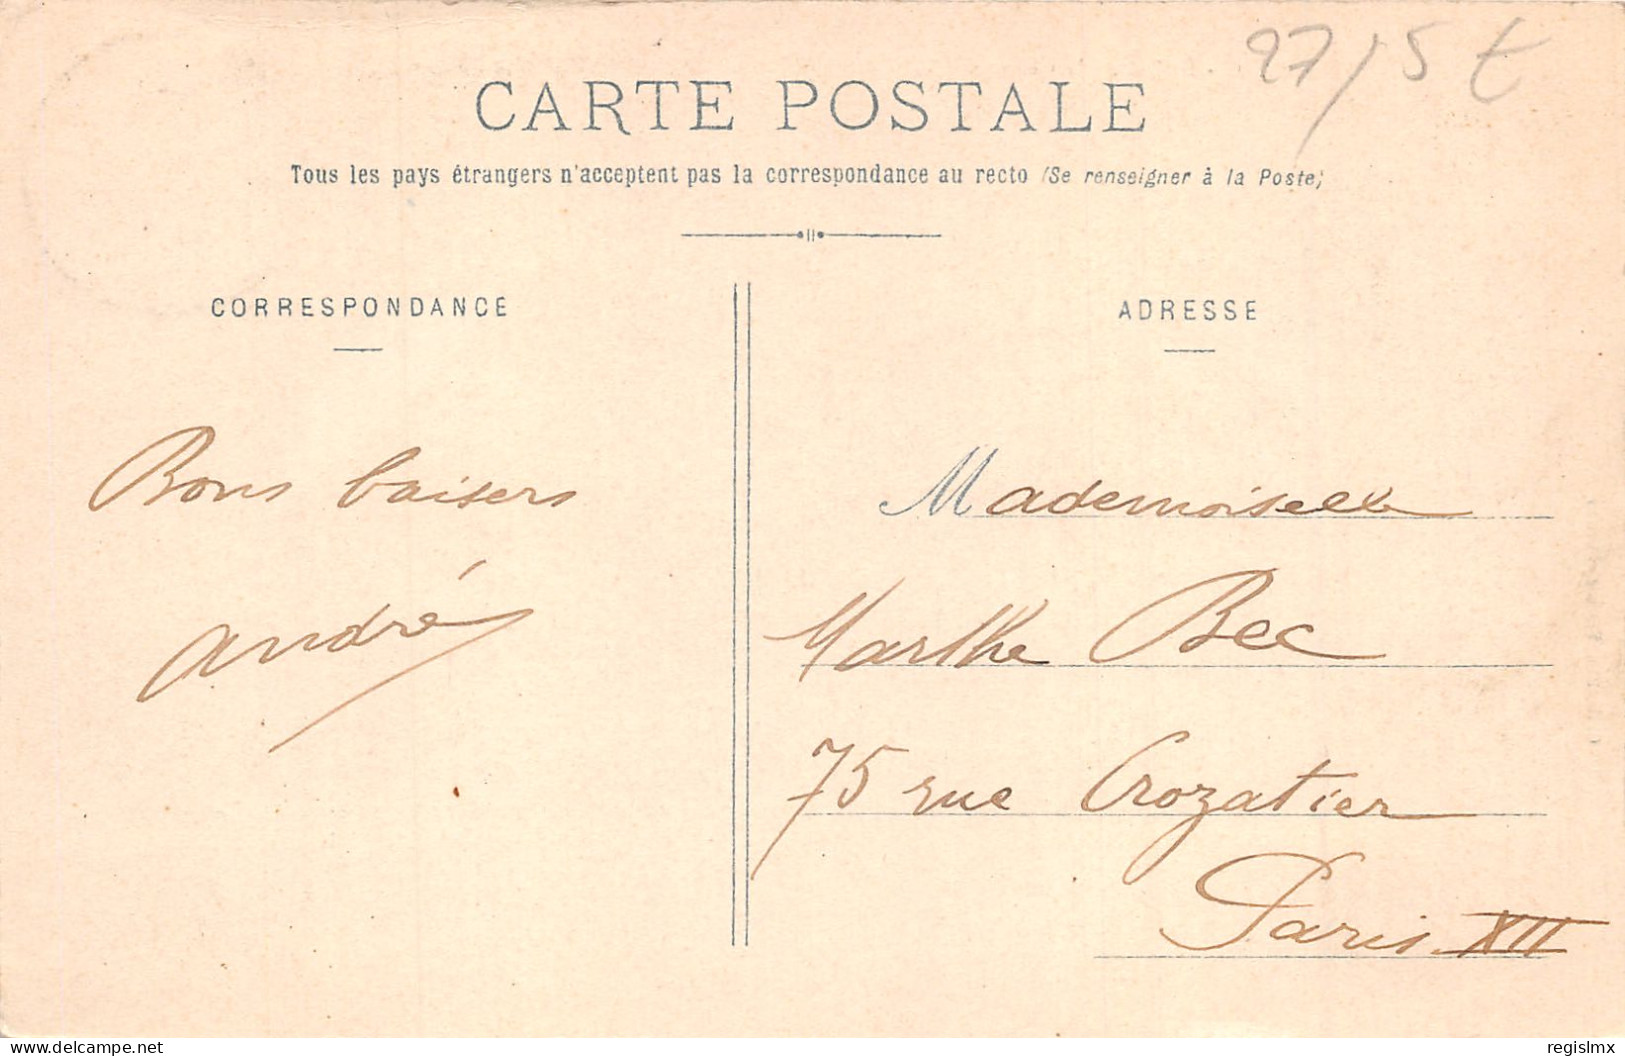 27/5 t
CARTE POSTALE
Tous les pays étrangers n'acceptent pas la correspondance au recto (Se renseigner à la Poste)
CORRESPONDANCE
ADRESSE
Bons baisers
André
Mademoiselle
Marthe Bec
75 rue Crozatier
Paris XII
delcampe.net
regislmx